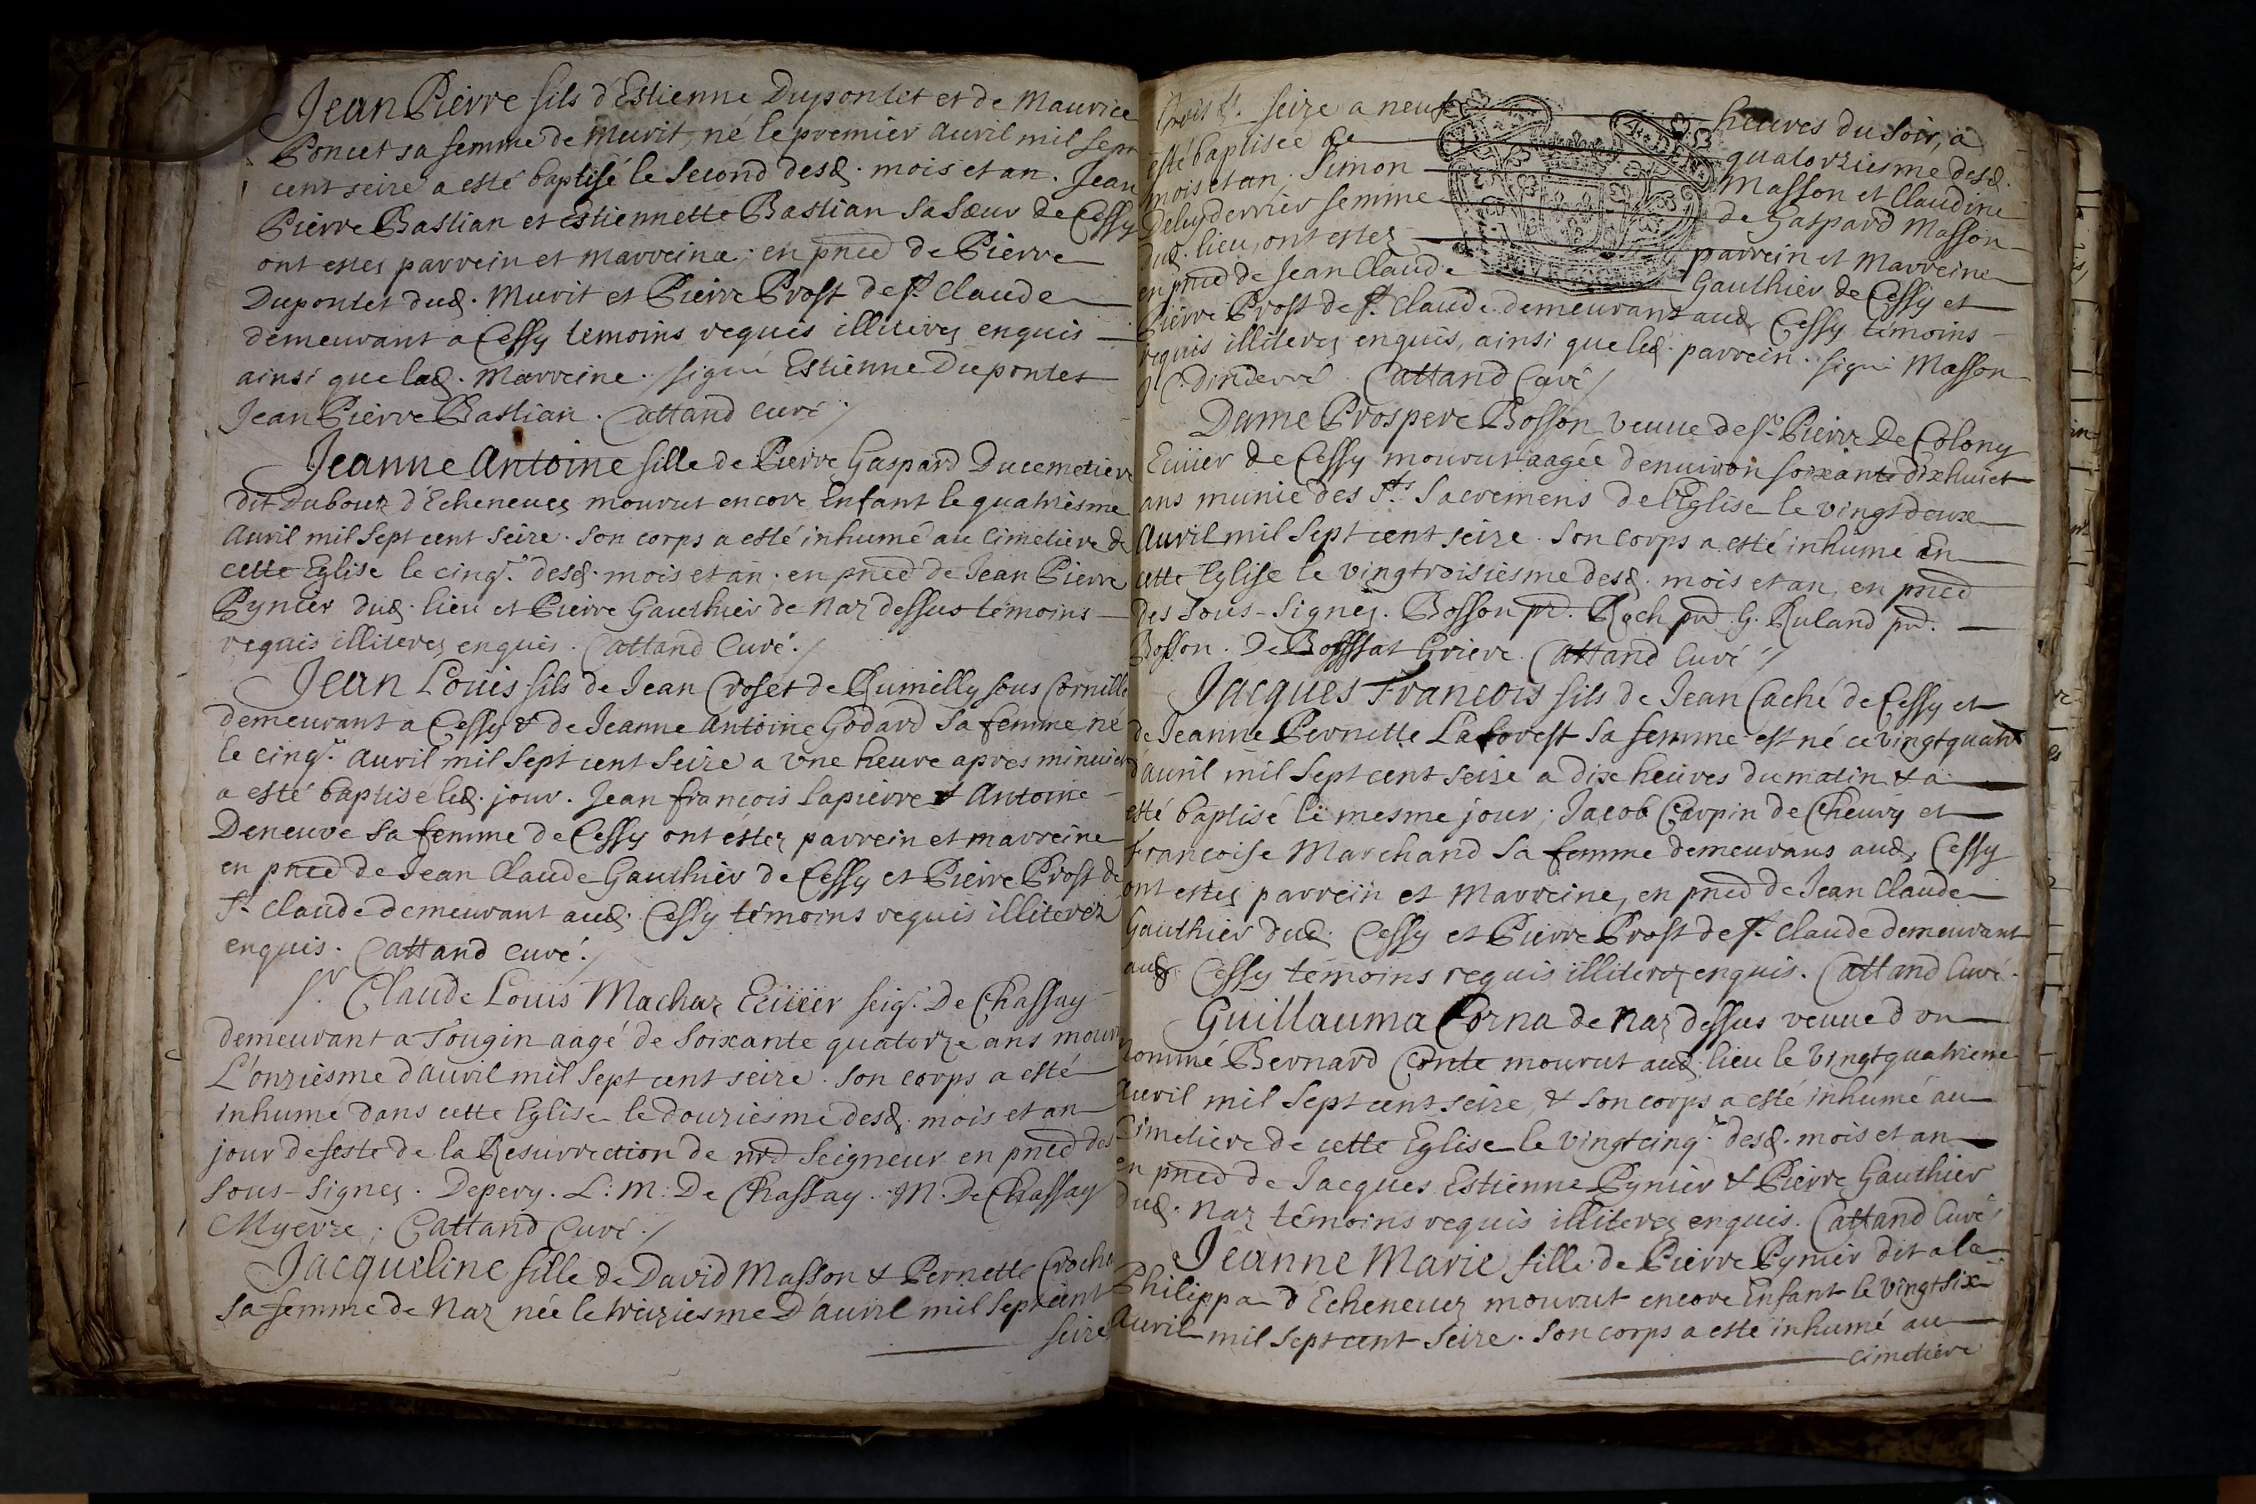 Jean Pierre fils d'Estienne Dupontet et de Maurice
Poncet sa femme de Murit, né le premier Auril mil sept
cent seize a esté baptisé le second desd. mois et an. Jean
Pierre Bastian et Estiennette Bastian sa sœur de Cessy
ont estez parrein et marreine; en pnce de Pierre
Dupontet dud. Murit et Pierre Prost de St. Claude
demeurant a Cessy temoins requis illiterez enquis
ainsi que lad. Marreine. signé Estienne Dupontet
Jean Pierre Bastian. Cattand curé./
Jeanne Antoine fille de Pierre Gaspard Ducemetiere
dit Dubouz d'Echeneuez mourut encore Enfant le quatriesme
Auril mil sept cent seize. son corps a esté inhumé au cimetiere de
cette Eglise le cinqe. desd. mois et an. en pnce de Jean Pierre
Pynier dud. lieu et Pierre Gauthier de Naz dessus témoins
requis illiterez enquis. Cattand Curé./
Jean Loüis fils de Jean Croset de Rumilly sous Cornille
demeurant a Cessy & de Jeanne Antoine Godard sa femme né
le cinqe. Auril mil sept cent seize a vne heure apres minuict
a esté baptisé led. jour. Jean françois Lapierre & Antoine
Deneuve sa femme de Cessy ont éstez parrein et marreine
en pnce de Jean Claude Gauthier de Cessy et Pierre Prost de
St. Claude demeurant aud. Cessy témoins requis illiterez
enquis. Cattand curé./
Sr. Claude Louis Machaz Ecüier seigr. De Chassay
demeurant a Tougin aagé de soixante quatorze ans mourut
L'onziesme d'auril mil sept cent seize. son corps a esté
inhumé dans cette Eglise le douziesme desd. mois et an
jour de feste de la Resurrection de nre Seigneur en pnce des
sous-signez. Depery. L: M: De Chassay. M. De Chassay
Myerze. Cattand Curé./
Jacqueline fille de David Masson & Pernette Crochat
sa femme de Naz née le treiziesme D'auril mil sept cent
seize
seize a neuf heures du soir, a
esté baptisée le quatorziesme desd.
mois et an. Simon Masson et Claudine
Deluyderrier femme de Gaspard Masson
dud. lieu, ont estez parrein et Marreine
en pnce de Jean Claude Gauthier de Cessy et
Pierre Prost de St. Claude demeurant aud. Cessy témoins
requis illiterez enquis, ainsi que led. parrein. signé Masson
C. Dinderré. Cattand Curé/
Dame Prospere Bosson veuue de Sr. Pierre De Colony
Ecüier de Cessy mourut aagée d'enuiron soixante dixhuict
ans munie des Sts. Sacremens de l'Eglise le vingtdeux
Auril mil sept cent seize. son corps a esté inhumé En
cette Eglise le vingtroisiesme desd. mois et an, en pnce
des sous-signez. Bosson pr. Roch prd. G. Ruland prd.
Bosson. De Bosssat Griere. Cattand Curé/
Jacques François fils de Jean Caché de Cessy et
de Jeanne Pernette Laforest sa femme est né ce vingtquatre
d'auril mil sept cent seize a dix heures du matin & a
esté baptisé le mesme jour; Jacob Carpin de Cheury et
françoise Marchand sa femme demeurans aud. Cessy
ont estez parrein et Marreine, en pnce de Jean Claude
Gauthier dud. Cessy et Pierre Prost de St. Claude demeurant
aud. Cessy témoins requis illiterez enquis. Cattand Curé.
Guillauma Corna de Naz dessus veuue d'vn
nommé Bernard Conte mourut aud. lieu le vingtquatrieme
Auril mil sept cent seize, & son corps a esté inhumé au
Cimetiere de cette Eglise le vingtcinqe. desd. mois et an
en pnce de Jacques Estienne Pynier & Pierre Gauthier
dud. Naz témoins requis illiterez enquis. Cattand Curé/
Jeanne Marie fille de Pierre Pynier dit a la
Philippa d'Echeneuez mourut encore Enfant le vingtsix
Auril mil sept cent seize. son corps a esté inhumé au
cimetiere